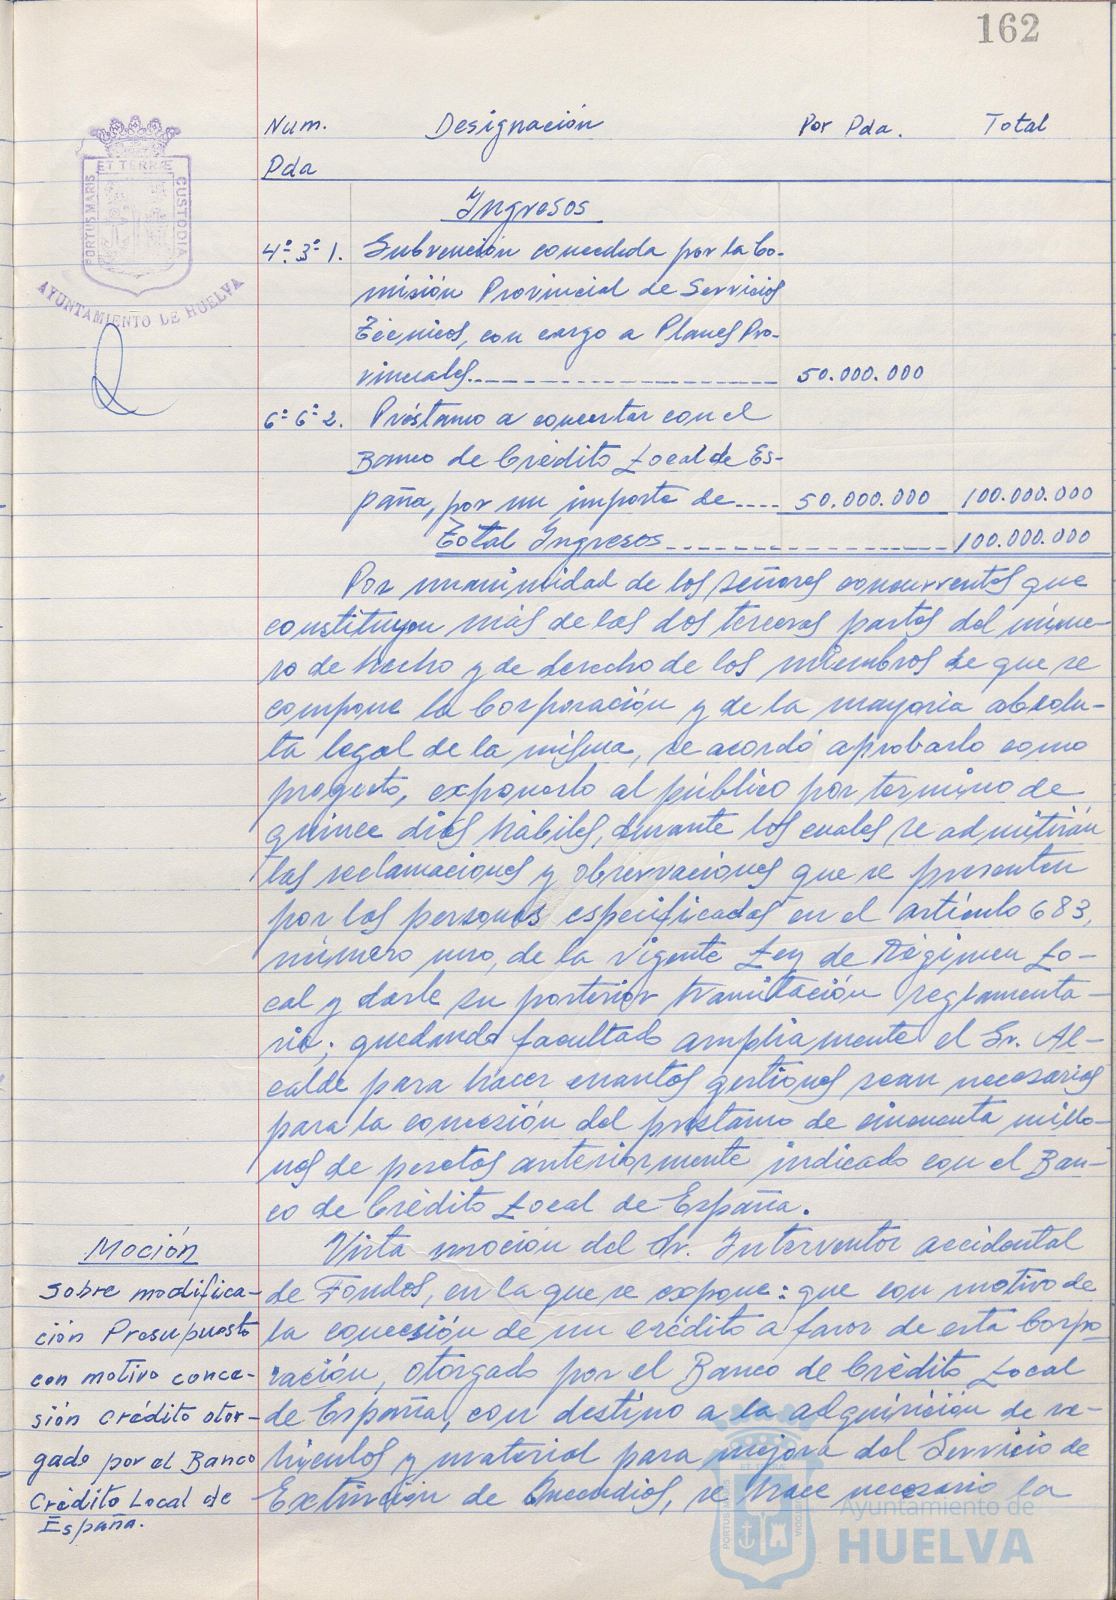 162
Num. Designación Por Pda. Total
Pda
Ingresos
4º- 3º- 1. Subvención concedida por la Co-
misión Provincial de Servicios
Técnicos, con cargo a Planes Pro-
vinciales.------------------ 50.000.000
6º- 6º- 2. Préstamo a concertar con el
Banco de Crédito Local de Es-
paña, por un importe de.... 50.000.000 100.000.000
Total Ingresos------------------100.000.000
Por unanimidad de los señores concurrentes que
constituyen más de las dos terceras partes del núme-
ro de hecho y de derecho de los miembros de que se
compone la Corporación y de la mayoria absolu-
ta legal de la misma, se acordó aprobarlo como
proyecto, exponerlo al público por termino de
quince dias hábiles, durante los cuales se admitirán
las reclamaciones y observaciones que se presenten
por las personas especificadas en el artículo 683,
número uno, de la vigente Ley de Régimen Lo-
cal y darle su posterior tramitación reglamenta-
ria; quedando facultado ampliamente el Sr. Al-
calde para hacer cuantas gestiones sean necesarias
para la concesión del préstamo de cincuenta millo-
nes de pesetas anteriormente indicado con el Ban-
co de Crédito Local de España.
Moción
Sobre modifica-
ción Presupuesto
con motivo conce-
sión Crédito otor-
gado por el Banco
Crédito Local de
España.
Vista moción del Sr. Interventor accidental
de Fondos, en la que se expone: que con motivo de
la concesión de un crédito a favor de esta Corpo
ración, otorgado por el Banco de Crédito Local
de España, con destino a la adquisición de ve-
hículos y material para mejora del Servicio de
Extinción de Incendios, se hace necesario la
PORTUS MARIS ET TERRÆ CUSTODIA
AYUNTAMIENTO DE HUELVA
Ayuntamiento de
HUELVA